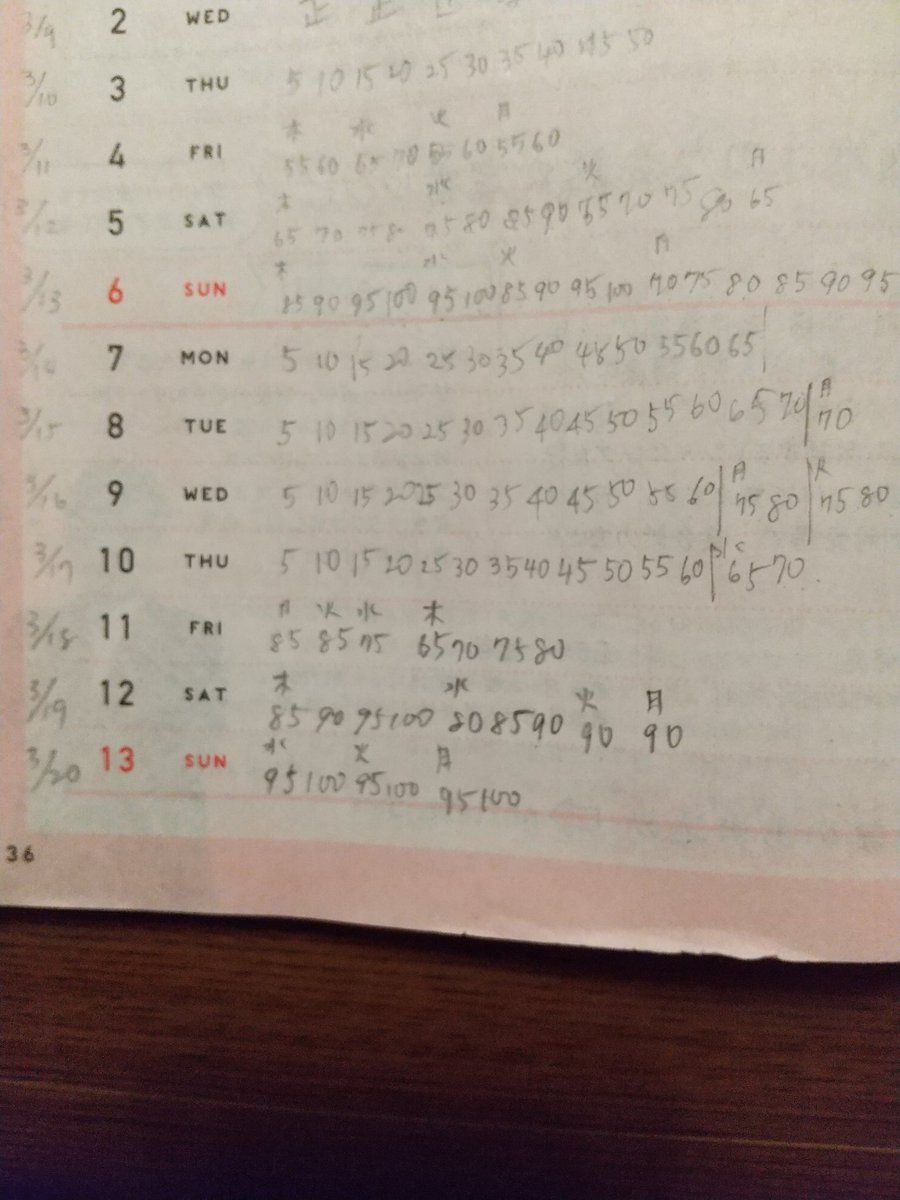 3/9 2 WED 正 正
3/10 3 THU 5 10 15 20 25 30 35 40 45 50
木 水 火 月
3/11 4 FRI 55 60 65 70 55 60 55 60
木 水 火 月
3/12 5 SAT 65 70 75 80 75 80 85 90 65 70 75 80 65
木 水 火 月
3/13 6 SUN 85 90 95 100 95 100 85 90 95 100 70 75 80 85 90 95
3/14 7 MON 5 10 15 20 25 30 35 40 45 50 55 60 65
月
3/15 8 TUE 5 10 15 20 25 30 35 40 45 50 55 60 65 70 70
月 火
3/16 9 WED 5 10 15 20 25 30 35 40 45 50 55 60 75 80 75 80
水
3/17 10 THU 5 10 15 20 25 30 35 40 45 50 55 60 65 70
月 火 水 木
3/18 11 FRI 85 85 75 65 70 75 80
木 水 火 月
3/19 12 SAT 85 90 95 100 80 85 90 90 90
水 火 月
3/20 13 SUN 95 100 95 100 95 100
36